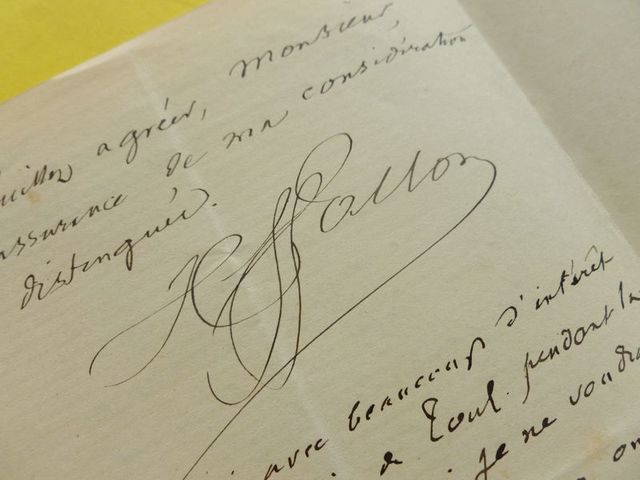 agréer, Monsieur,
assurance de ma considération
distinguée.
H Wallon
avec beaucoup d'intérêt
de Toul pendant la
je ne voudra